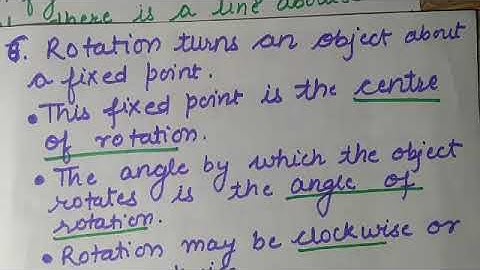 there is a line about
6. Rotation turns an object about
a fixed point.
• This fixed point is the centre
of rotation.
• The angle by which the object
rotates is the angle of
rotation.
• Rotation may be clockwise or